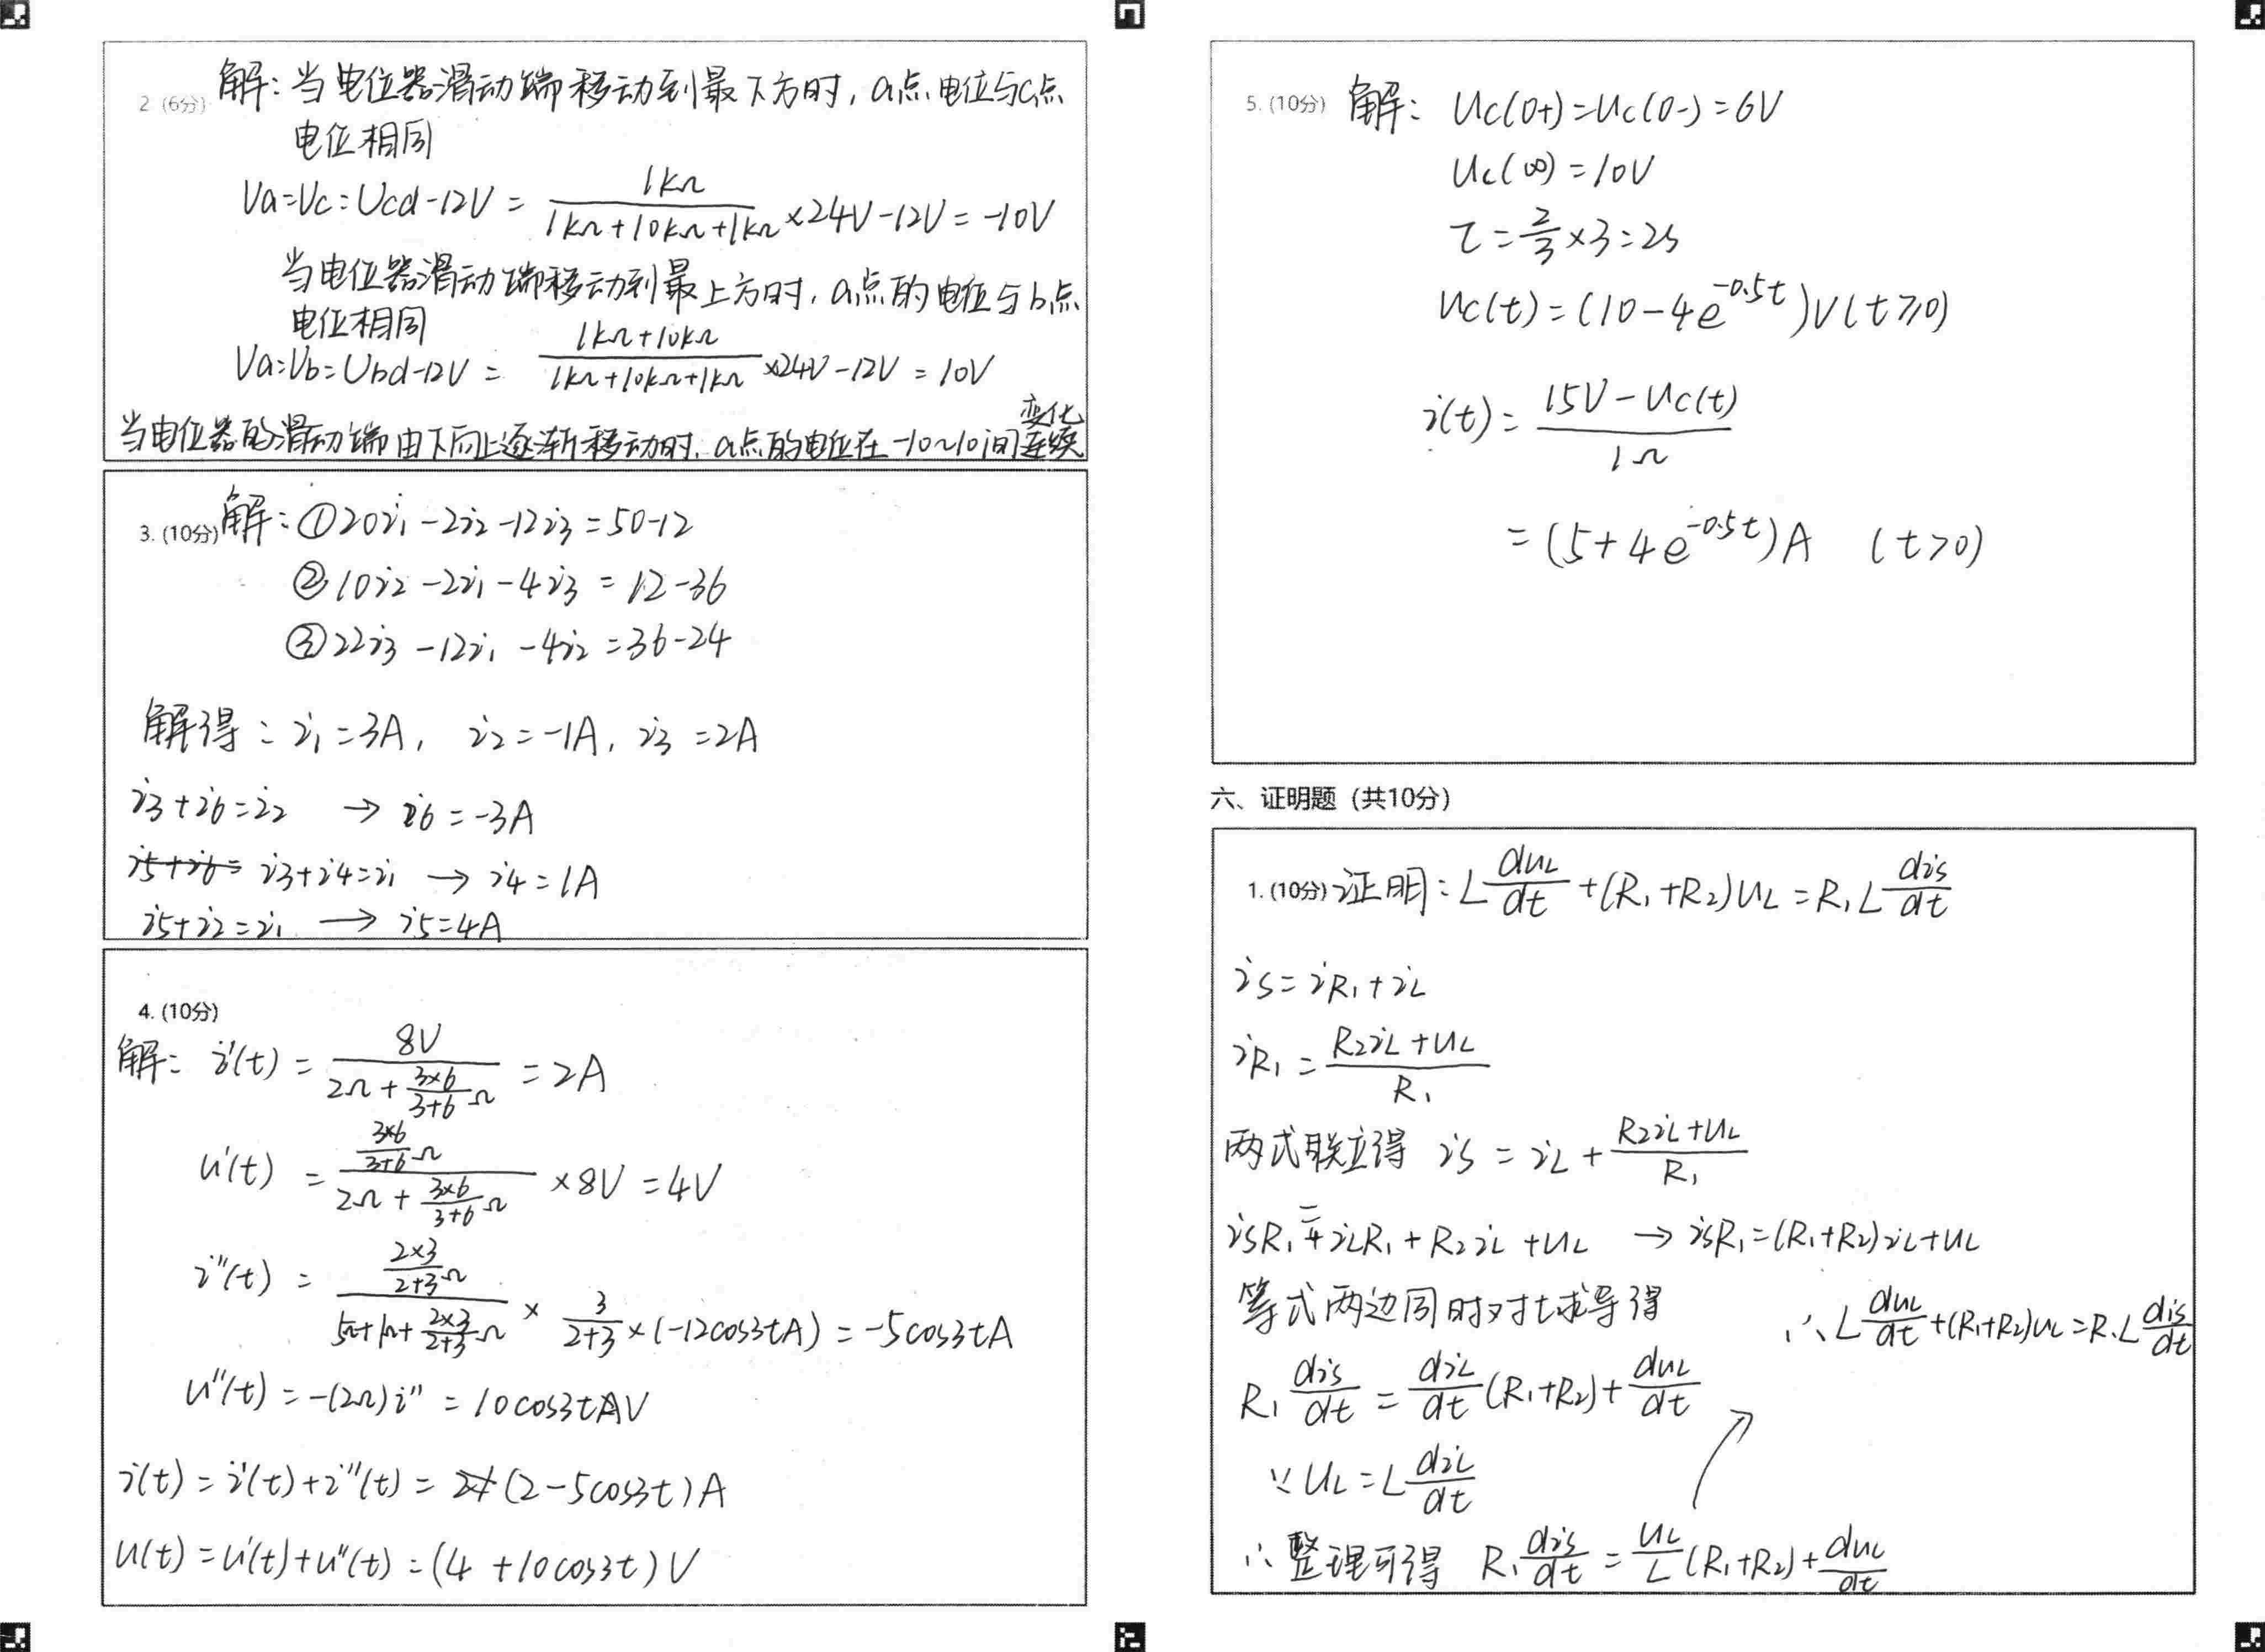 2 (6分) 解：当电位器滑动端移动到最下方时，a点电位与c点
电位相同
Va=Vc=Ucd-12V = \frac{1kΩ}{1kΩ+10kΩ+1kΩ}×24V-12V=-10V
当电位器滑动端移动到最上方时，a点的电位与b点
电位相同
Va=Vb=Ubd-12V = \frac{1kΩ+10kΩ}{1kΩ+10kΩ+1kΩ}×24V-12V=10V
当电位器的滑动端由下向上逐渐移动时，a点的电位在-10~10间连续
变化
3. (10分) 解：①20i₁-2i₂-12i₃=50-12
②10i₂-2i₁-4i₃=12-36
③22i₃-12i₁-4i₂=36-24
解得：i₁=3A, i₂=-1A, i₃=2A
i3+i6=i2 → i6=-3A
i5+i6= i3+i4=i1 → i4=1A
i5+i2=i1 → i5=4A
4. (10分)
解：i'(t) = \frac{8V}{2Ω+\frac{3×6}{3+6}Ω} =2A
u'(t) = \frac{\frac{3×6}{3+6}Ω}{2Ω+\frac{3×6}{3+6}Ω} ×8V=4V
i''(t) = \frac{\frac{2×3}{2+3}Ω}{5Ω+1Ω+\frac{2×3}{2+3}Ω} × \frac{3}{2+3}×(-12cos3tA)=-5cos3tA
u''(t)=-(2Ω)i''=10cos3tV
i(t)=i'(t)+i''(t)=(2-5cos3t)A
u(t)=u'(t)+u''(t)=(4+10cos3t)V
5. (10分) 解：Uc(0+)=Uc(0-)=6V
Uc(∞)=10V
τ=\frac{2}{3}×3=2s
Uc(t)=(10-4e^{-0.5t})V(t≥0)
i(t)=\frac{15V-Uc(t)}{1Ω}
=(5+4e^{-0.5t})A (t>0)
六、证明题（共10分）
1. (10分) 证明：L\frac{duL}{dt}+(R₁+R₂)UL=R₁L\frac{dis}{dt}
is=iR₁+iL
iR₁=\frac{R₂iL+UL}{R₁}
两式联立得 is=iL+\frac{R₂iL+UL}{R₁}
isR₁=iLR₁+R₂iL+UL → isR₁=(R₁+R₂)iL+UL
等式两边同时对t求导得
∴L\frac{duL}{dt}+(R₁+R₂)UL=R₁L\frac{dis}{dt}
R₁\frac{dis}{dt}=\frac{diL}{dt}(R₁+R₂)+\frac{duL}{dt}
∵UL=L\frac{diL}{dt}
∴整理可得 R₁\frac{dis}{dt}=\frac{UL}{L}(R₁+R₂)+\frac{duL}{dt}